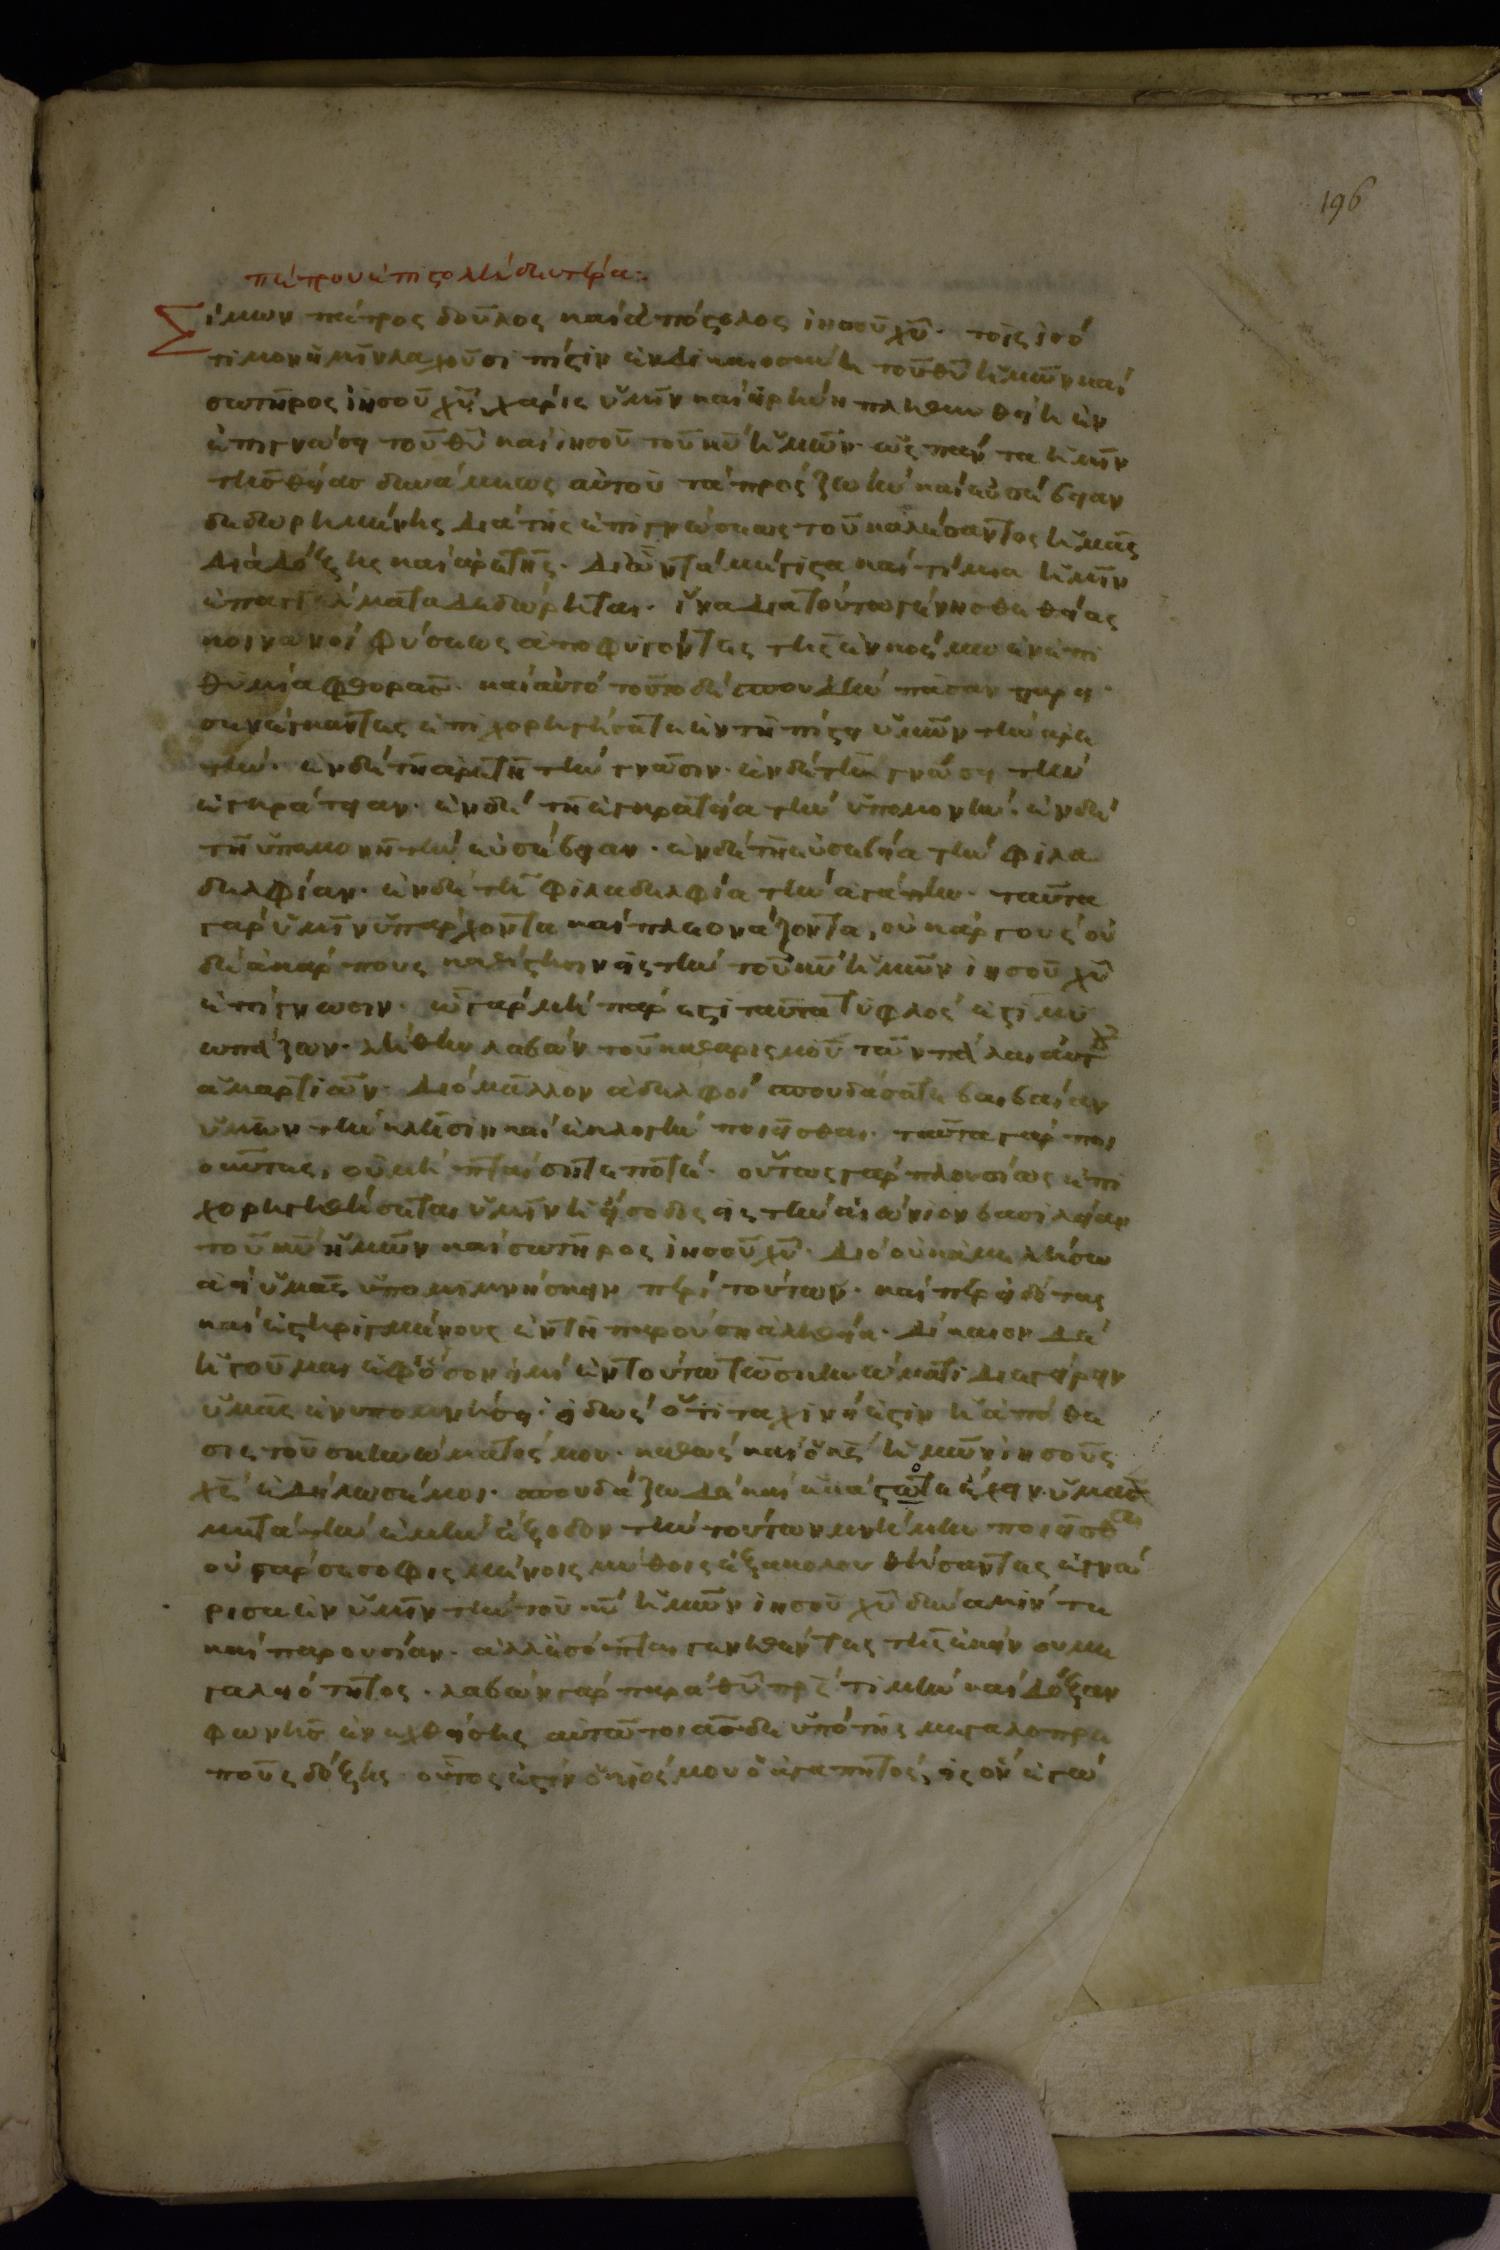 196
πέτρου ἐπιστολὴ δευτέρα:
Σίμων πέτρος δοῦλος καὶ ἀπόστολος ἰησοῦ χῦ· τοῖς ἰσό
τιμον ἡμῖν λαχοῦσι πίστιν ἐν δικαιοσύνη τοῦ θῦ ἡμῶν καὶ
σωτῆρος ἰησοῦ χῦ, χάρις ὑμῖν καὶ εἰρήνη πληθυνθείη ἐν
ἐπιγνώσει τοῦ θῦ καὶ ἰησοῦ τοῦ κῦ ἡμῶν· ὡς πάντα ἡμῖν
τῆς θείας δυνάμεως αὐτοῦ τὰ πρὸς ζωὴν καὶ εὐσέβειαν
δεδωρημένης διὰ τῆς ἐπιγνώσεως τοῦ καλέσαντος ἡμᾶς
διὰ δόξης καὶ ἀρετῆς· δι ὧν τὰ μέγιστα καὶ τίμια ἡμῖν
ἐπαγγέλματα δεδώρηται· ἵνα διὰ τούτων γένησθε θείας
κοινωνοὶ φύσεως ἀποφυγόντες τῆς ἐν κόσμω ἐν ἐπι
θυμία φθορᾶς· καὶ αὐτὸ τοῦτο δὲ σπουδὴν πᾶσαν παρει
σενέγκαντες ἐπιχορηγήσατε ἐν τῆ πίστει ὑμῶν τὴν ἀρε
τήν· ἐν δὲ τῆ ἀρετῆ τὴν γνῶσιν· ἐν δὲ τῆ γνώσει τὴν
ἐγκράτειαν· ἐν δὲ τῆ ἐγκρατεία τὴν ὑπομονήν· ἐν δὲ
τῆ ὑπομονῆ τὴν εὐσέβειαν· ἐν δὲ τῆ εὐσεβεία τὴν φιλα
δελφίαν· ἐν δὲ τῆ φιλαδελφία τὴν ἀγάπην· ταῦτα
γὰρ ὑμῖν ὑπάρχοντα καὶ πλεονάζοντα, οὐκ ἀργοὺς οὐ
δὲ ἀκάρπους καθίστησιν εἰς τὴν τοῦ κῦ ἡμῶν ἰησοῦ χῦ
ἐπίγνωσιν· ὧ γὰρ μὴ πάρεστι ταῦτα τυφλός ἐστι μυ
ωπάζων· λήθην λαβὼν τοῦ καθαρισμοῦ τῶν πάλαι αὐτοῦ
ἁμαρτιῶν· διὸ μᾶλλον ἀδελφοὶ σπουδάσατε βεβαίαν
ὑμῶν τὴν κλῆσιν καὶ ἐκλογὴν ποιεῖσθαι· ταῦτα γὰρ ποι
οῦντες, οὐ μὴ πταίσητέ ποτέ· οὕτως γὰρ πλουσίως ἐπι
χορηγηθήσεται ὑμῖν ἡ εἴσοδος εἰς τὴν αἰώνιον βασιλείαν
τοῦ κῦ ἡμῶν καὶ σωτῆρος ἰησοῦ χῦ· διὸ οὐκ ἀμελήσω
ἀεὶ ὑμᾶς ὑπομιμνήσκειν περὶ τούτων· καίπερ εἰδότας
καὶ ἐστηριγμένους ἐν τῆ παρούση ἀληθεία· δίκαιον δὲ
ἡγοῦμαι ἐφ ὅσον εἰμὶ ἐν τούτω τῶ σκηνώματι διεγείρειν
ὑμᾶς ἐν ὑπομνήσει· εἰδὼς ὅτι ταχινή ἐστιν ἡ ἀπόθε
σις τοῦ σκηνώματός μου· καθὼς καὶ ὁ κς ἡμῶν ἰησοῦς
χς ἐδήλωσέ μοι· σπουδάζω δὲ καὶ ἑκάστοτε ἔχειν ὑμᾶς
μετὰ τὴν ἐμὴν ἔξοδον τὴν τούτων μνήμην ποιεῖσθαι
οὐ γὰρ σεσοφισμένοις μύθοις ἐξακολουθήσαντες ἐγνω
ρίσαμεν ὑμῖν τὴν τοῦ κῦ ἡμῶν ἰησοῦ χῦ δύναμίν τε
καὶ παρουσίαν· ἀλλ ἐπόπται γενηθέντες τῆς ἐκείνου με
γαλειότητος· λαβὼν γὰρ παρὰ θῦ πρς τιμὴν καὶ δόξαν
φωνῆς ἐνεχθείσης αὐτῶ τοιᾶσδε ὑπὸ τῆς μεγαλοπρε
ποῦς δόξης· οὗτός ἐστιν ὁ υἱός μου ὁ ἀγαπητός, εἰς ὃν ἐγὼ